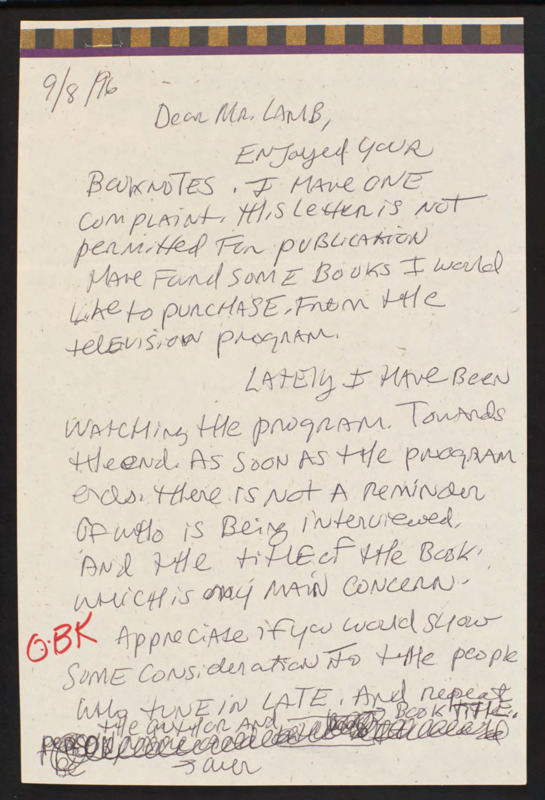 9/8/96
Dear Mr. LAMB,
ENjoyed YOUR
BOOKNOTES. I HAVE ONE
complaint. this Letter is NOT
permitted FOR publication
HAVE Found SOME BOOKS I would
Like to purchase. From the
television program.
LATELY I HAVE BEEN
WATCHING the program. Towards
the end. AS SOON AS the program
ends. there is NOT A reminder
OF who is Being interviewed.
AND the title of the Book.
WHICH is my MAIN CONCERN.
O.BK Appreciate if you would show
SOME consideration to the people
who TUNE IN LATE. And repeat
the author AND BOOK TITLE.
person
over